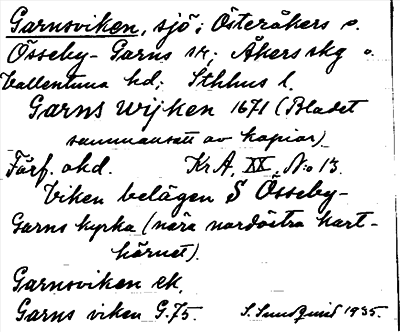 Garnsviken, sjö; Österåkers o.
Össeby-Garns sr; Åkers skg o.
Vallentuna hd; Sthlms l.
Garns Wijken 1671 (Bladet
sammansatt av kopior)
Förf. okd. KrA, XX, N:o 13.
Viken belägen S Össeby-
Garns kyrka (nära nordöstra kart-
hörnet).
Garnsviken ek.
Garns viken G.75. S. Sundquist 1935.